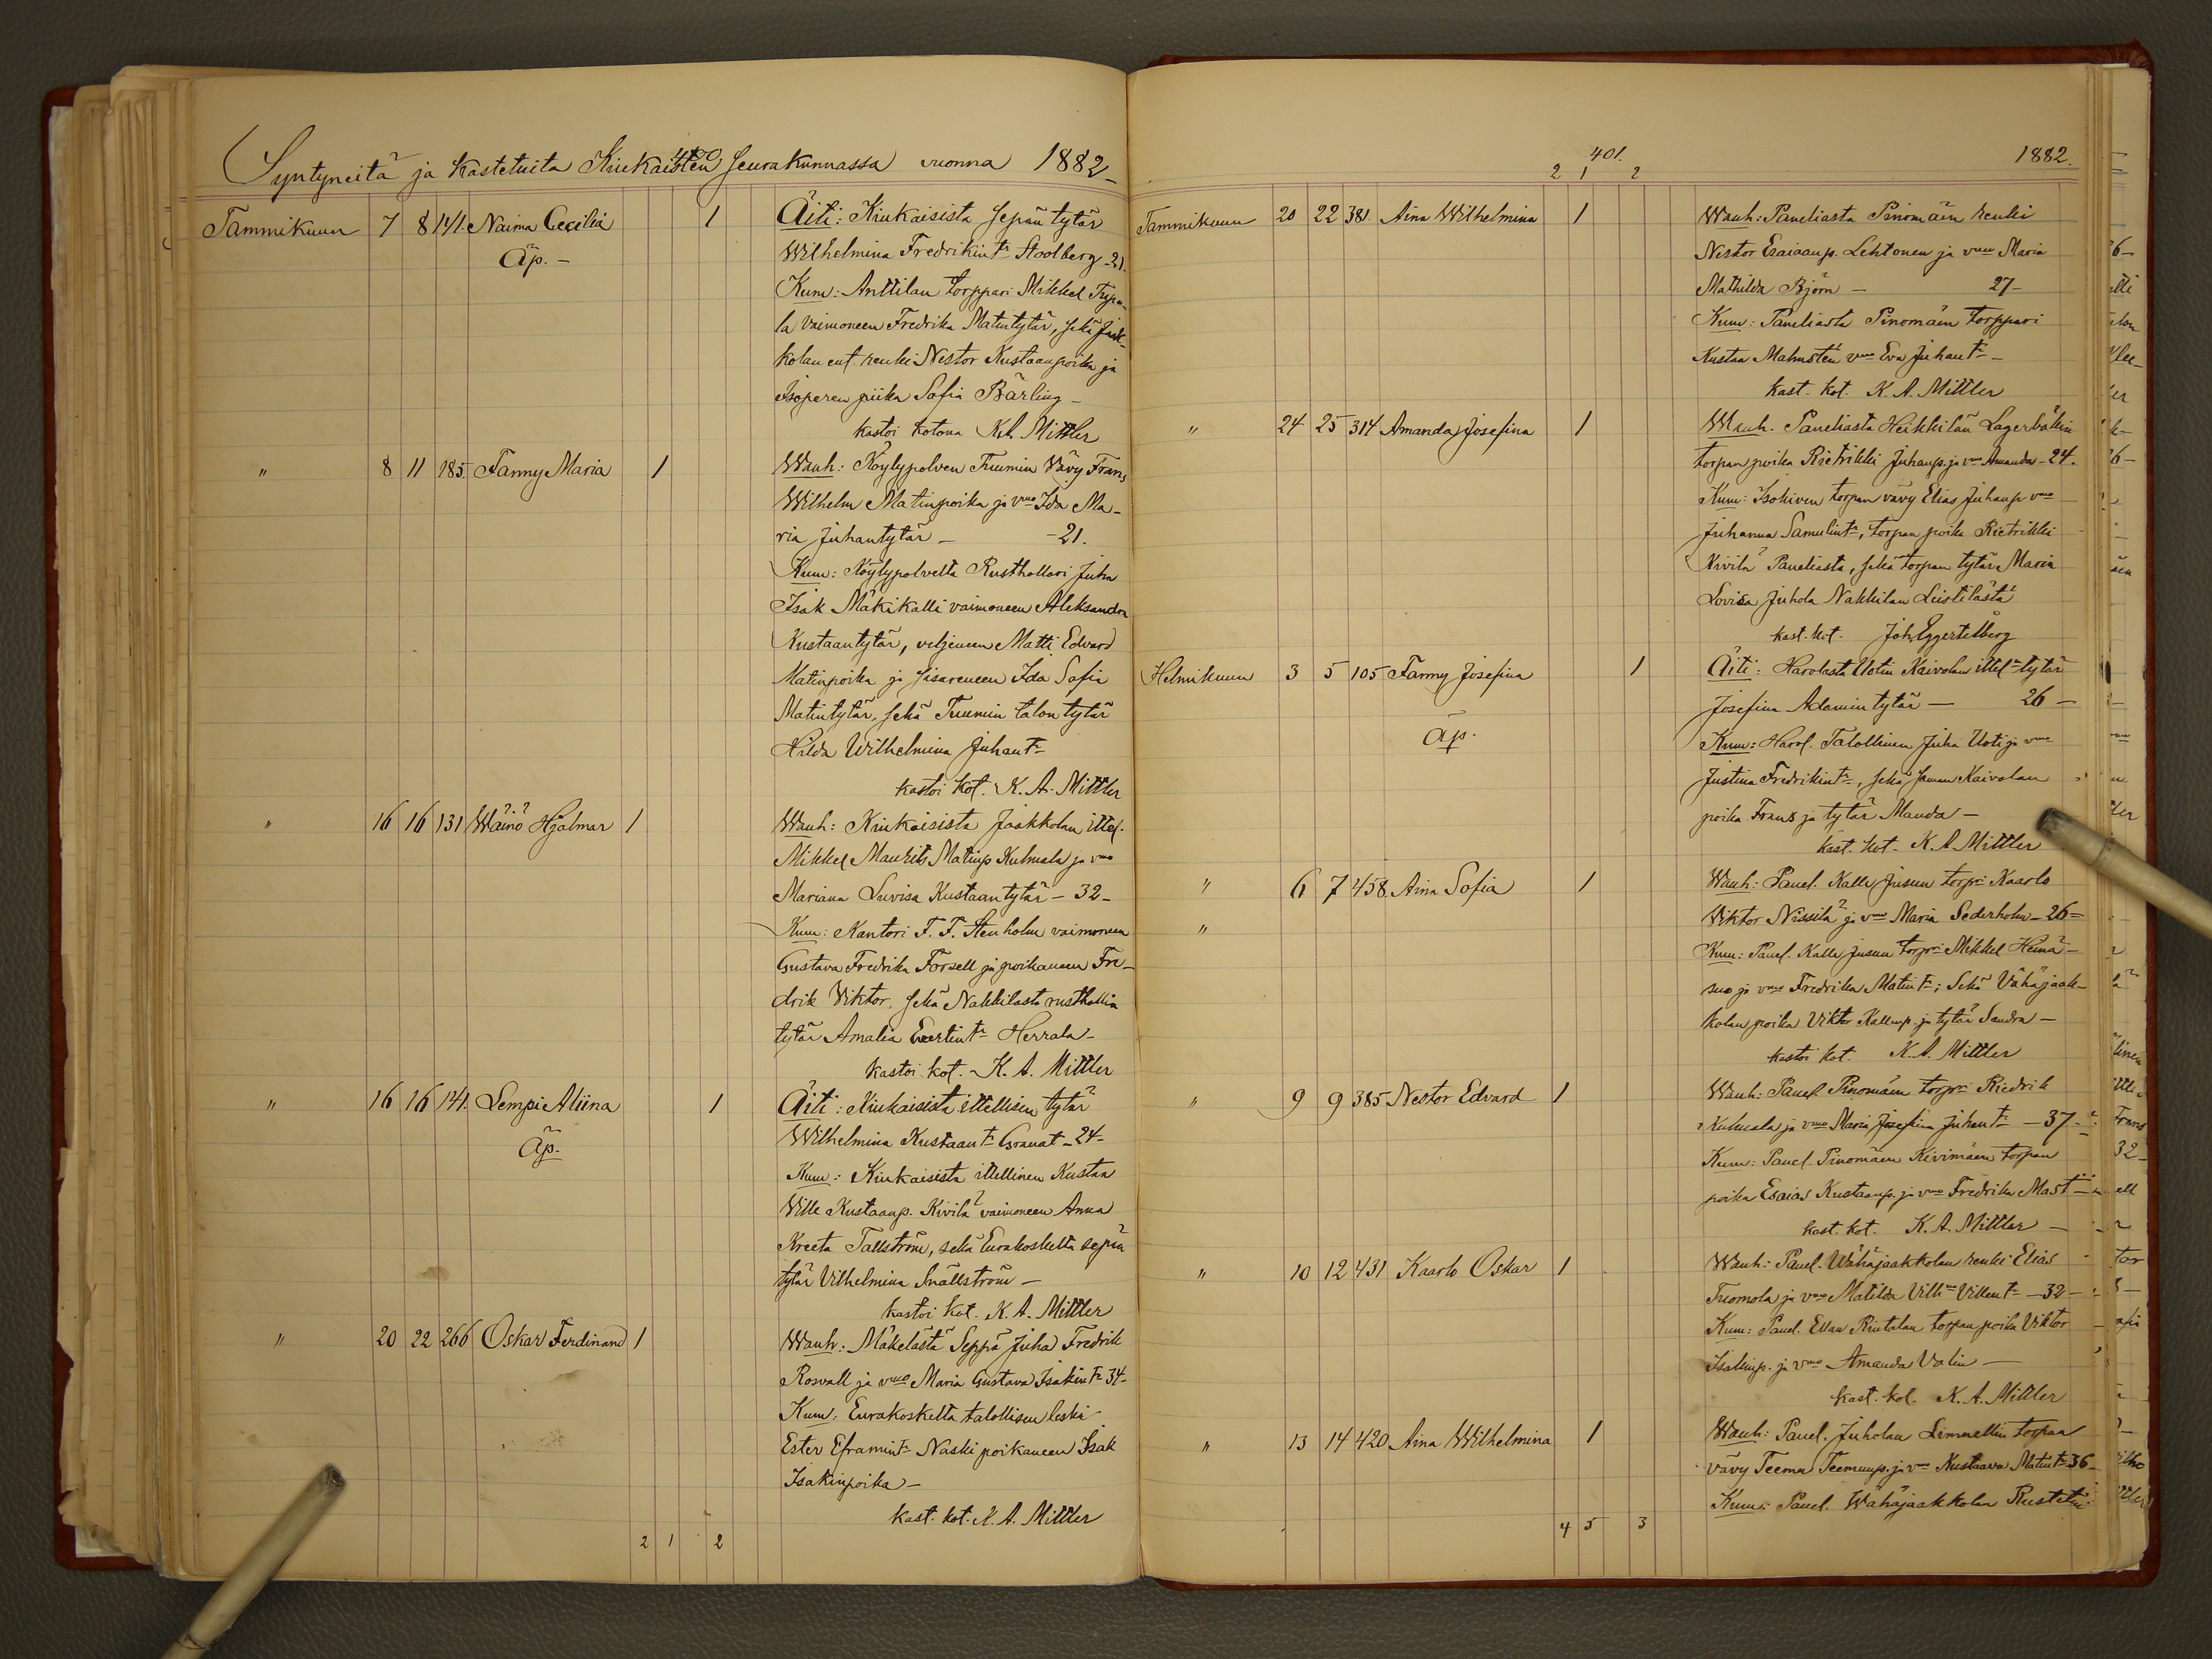 400
Syntyneitä ja kastetuita Kiukaisten seurakunnassa vuonna 1882
Tammikuun 7 8 141. Naima Cecilia 1 Äiti: Kiukaisista sepän tytär
Äp. – Wilhelmina Fredrikint. Stoolberg – 21.
Kum: Anttilan torppari Mikkel
la vaimoneen Fredrika Matintytär, sekä Jaak-
kolan ent. renki Nestor Kustaanpoika ja
Isoperen piika Sofia Bärling –
kastoi kotona K.A. Mittler
" 8 11 185. Fanny Maria 1 Wanh: Köylypolven Tuomin Vävy Frans
Wilhelm Matinpoika ja vmo Ida Ma-
ria Juhantytär – – 21.
Kum: Köylypolvelta Rusthollari Juha
Isak Mäkikalli vaimoneen Aleksandra
Kustaantytär, veljeneen Matti Edvard
Matinpoika ja sisareneen Ida Sofia
Matintytär, sekä Tuomin talon tytär
Hilda Wilhelmina Juhant.
kastoi kot. K. A. Mittler
" 16 16 131 Wäinö Hjalmar 1 Wanh: Kiukaisista Jaakkolan ittel.
Mikkel Maurits Matinp Kulmala ja vmo
Mariana Luvisa Kustaantytär – 32 –
Kum: Kantori F. F. Stenholm vaimoneen
Gustava Fredrika Forsell ja poikaneen Fre-
drik Viktor, sekä Nakkilasta rusthollin
tytär Amalia Evertint. Herrala –
kastoi kot. K. A. Mittler
" 16 16 141. Lempi Aliina 1 Äiti: Kiukaisista ittellisen tytär
Äp. Wilhelmina Kustaant. Granat – 24 –
Kum: Kiukaisista ittellinen Kustaa
Ville Kustaanp. Kivilä vaimoneen Anna
Kreeta Tallström, sekä Eurakoskelta sepän
tytär Vilhelmina Snällström –
kastoi kot. K. A. Mittler
" 20 22 266 Oskar Ferdinand 1 Wanh: Mäkelästä Seppä Juha Fredrik
Rosvall ja vmo Maria Gustava Isakint. 34 –
Kum: Eurakoskelta talollisen leski
Ester Eframint. Naski poikaneen Isak
Isakinpoika –
kast. kot. K. A. Mittler
2 1 2
401. 1882.
2 1 2
Tammikuun 20 22 381 Aina Wilhelmina 1 Wanh: Paneliasta Pinomäen renki
Nestor Esaiaanp. Lehtonen ja vmo Maria
Mathilda Björn – 27 –
Kum: Paneliasta Pinomäen torppari
Kustaa Malmsten vmo Eva Juhant. –
kast. kot. K. A. Mittler
" 24 25 314 Amanda Josefina 1 Wanh. Paneliasta Heikkilän Lagerbäkin
torpan poika Rietrikki Juhanp. ja vmo Amanda – 24.
Kum: Isohiven torpan vävy Elias Juhanp vmo
Juhanna Samulint., torpan poika Rietrikki
Kivilä Paneliasta, sekä torpan tytär Maria
Lovisa Juhola Nakkilan Leistilästä
kast. kot. Joh. Eggertelberg
Helmikuun 3 5 105 Fanny Josefina 1 Äiti: Harolasta Uotin Kaivolan ittel. tytär
Josefina Adamintytär – 26 –
Äp. Kum: Harol. Talollinen Juha Uoti ja vmo
Justina Fredrikint., sekä saman Kaivolan
poika Frans ja tytär Manda –
kast. kot. K. A. Mittler
" 6 7 458. Aina Sofia 1 Wanh: Panel. Kalle Jusun torpri Kaarlo
" Viktor Nissilä ja vmo Maria Sederholm – 26 –
Kum: Panel. Kalle Jusun torpri Mikkel Heinä-
suo ja vmo Fredrika Matint.; Sekä Vähäjaak-
kolan poika Viktor Kallenp. ja tytär Sandra –
kastoi kot. K. A. Mittler
" 9 9 385 Nestor Edvard 1 Wanh: Panel. Pinomäen torpri Riedrik
Kuhusla ja vmo Maria Josefina Juhant. – 37 –
Kum: Panel. Pinomäen Kivimäen torpan
poika Esaias Kustaanp. ja vmo Fredrika Mast –
kast. kot. K. A. Mittler –
" 10 12 431 Kaarlo Oskar 1 Wanh: Panel. Wähäjaakkolan renki Elias
Tuomola ja vmo Matilda Vilhna Villent. – 32 –
Kum: Panel. Ellan Rintalan torpan poika Viktor
Isakinp. ja vmo Amanda Valin –
kast. kot. K. A. Mittler
" 13 14 420 Aina Wilhelmina 1 Wanh: Panel. Juholan Lemmettin torpan
vävy Teemu Teemunp. ja vmo Kustaava Matint. 36 –
Kum: Panel. Wähäjaakkolan
4 5 3